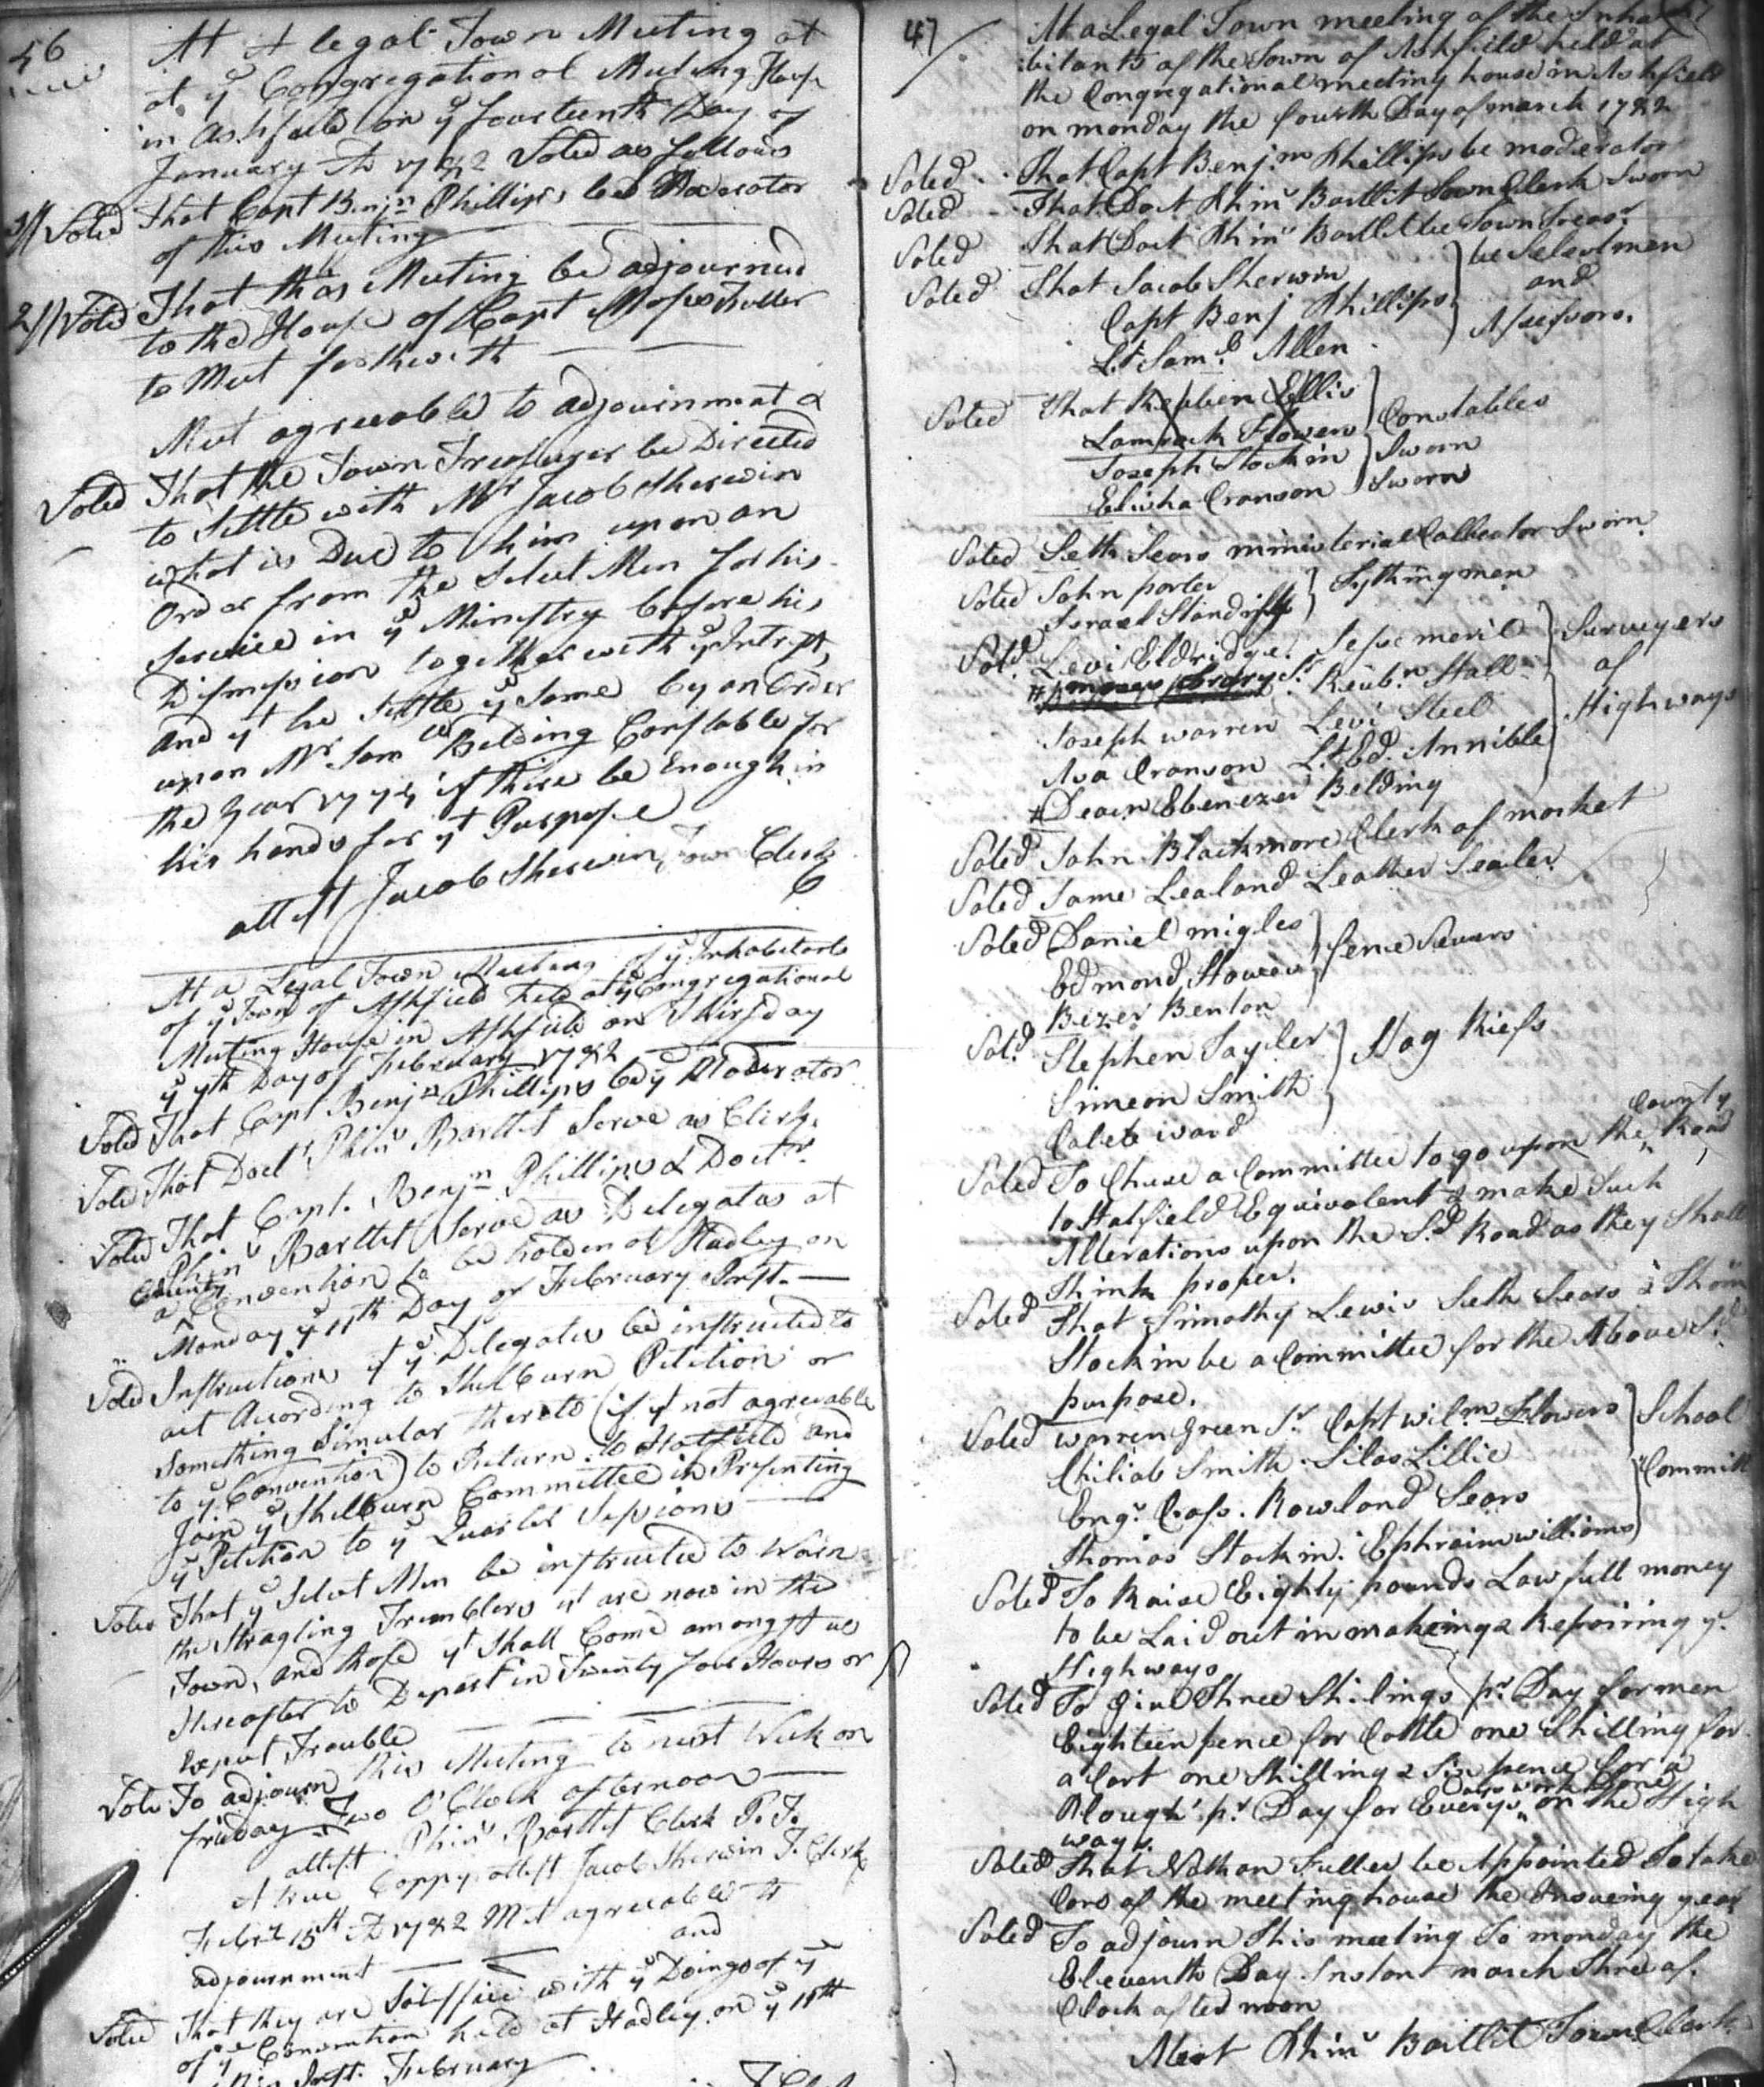 46
At A legal Town Meeting at
at yͤ Congregational Meeting House
in Ashfield on yͤ fourteenth Day of
January AD 1782 Voted as follows
Voted That Capt Benjn Phillips be Moderator
of this Meeting
2 Voted That this Meeting be adjourned
to the House of Capt Moses Fuller
to Meet forthwith
Met agreeable to adjournment &
Voted That the Town Treasurer be Directed
to Settle with Mr Jacob Sherwin
what is Due to him upon an
Order from the Select Men for his
Service in yͤ Ministry before his
Dismission together with yͤ Intrest,
and yt he Settle yͤ Same by an Order
upon Mr Samll Belding Constable for
the Year if there be Enough in
his hands for yt Purpose
attest Jacob Sherwin, Town Clerk
At a Legal Town Meeting of yͤ Inhabitants
of yͤ Town of Ashfield held at yͤ Congregational
Meeting House in Ashfield on Thirsday
yͤ 7th Day of February 1782
Voted That Capt Benjn Phillips be yͤ Moderator
Voted That Doct Phins Bartlet Serve as Clerk.
Voted That Capt. Benjn Phillips & Doctr
Phins Bartlet Serve as Delegates at
a County Convention to be holden at Hadley on
Monday yͤ 11th Day of February Inst.
Voted Instructions yt yͤ Delegates be instructed to
act According to Shelburn Petition or
Something Simular thereto (if yt not agreeable
to yͤ Convention) to Return to Hatfield and
Join yͤ Shelburn Committee in Presenting
yͤ Petition to yͤ Quarter Sessions
Voted That yͤ Select Men be instructed to Warn
the Stragling Tremblers yt are now in the
Town, and those yt Shall Come amongst us
Hereafter to Depart in Twenty four Hours or
Expect Trouble
Voted To adjourn this Meeting to next Week on
friday Two O'Clock afternoon
attest Phins Bartlet Clerk P. T.
A true Coppy attest Jacob Sherwin T. Clerk
Febr 15th AD 1782 Met agreeable to
adjournment and
Voted That they are Satisfied with yͤ Doings of yͤ
of yͤ Convention held at Hadley on yͤ 11th
Inst. February
47
At a Legal Town meeting of the Inha
bitants of the Town of Ashfield held at
the Congregational meeting house in Ashfield
on monday the fourth Day of march 1782
Voted That Capt Benjmn Phillips be moderator
Voted That Doct Phins Bartlit Town Clerk Sworn
Voted That Doct Phins Bartlit be Town Treasr
Voted That Jacob Sherwin
Capt Benj Phillips
Lt Saml Allen
be Selectmen
and
Assessors.
Voted That Reuben Ellis
Lamrock Flower
Joseph Stockin
Elisha Cranson
Constables
Sworn
Sworn
Voted Seth Sears ministerial Collector Sworn
Voted John porter
Israel Standish
Tythingmen
Votd Levi Eldridge. Jesse meril
Sr. Reubn Hall
Joseph warren Levi Steel
Asa Cranson Lt. Ed. Annible
# Deacn Ebenezer Belding
Surveyers
of
Highways
Voted John Blackmore Clerk of market
Voted Jame Lealand Leather Sealer
Voted Daniel migles
Edmond Howes
Bezer Benton
fence Vewers
Votd Stephen Tayler
Simeon Smith
Caleb ward
Hog Riefs
Voted To Chuse a Committee to go upon the County Road
to Hatfield Equivalent & make Such
Alterations upon the Sd Road as they Shall
Think proper.
Voted That Timothy Lewis Seth Sears & Thom
Stockin be a Committee for the Above Sd
purpose.
Voted warren Green Sr Capt wilm Flowers
Chiliab Smith. Silas Lillie
Engn Cass. Rowland Sears
Thomas Stockin. Ephraim williams
School
Committ
Voted To Raise Eighty pounds Lawfull money
to be Laid out in makeing & Repairing ye
Highways
Voted To give Three Shilings pr Day for men
Eighteen pence for Cattle one Shilling for
a Cart one Shilling & Six pence for a
Plough pr Day for Every Days work Done on the High
ways.
Voted That Nathan Fuller be Appointed To take
Care of the meeting house the Insueing year
Voted To adjourn This meeting To monday the
Eleventh Day Instant march Three of.
Clock afternoon
Attest Phins Bartlit Town Clerk